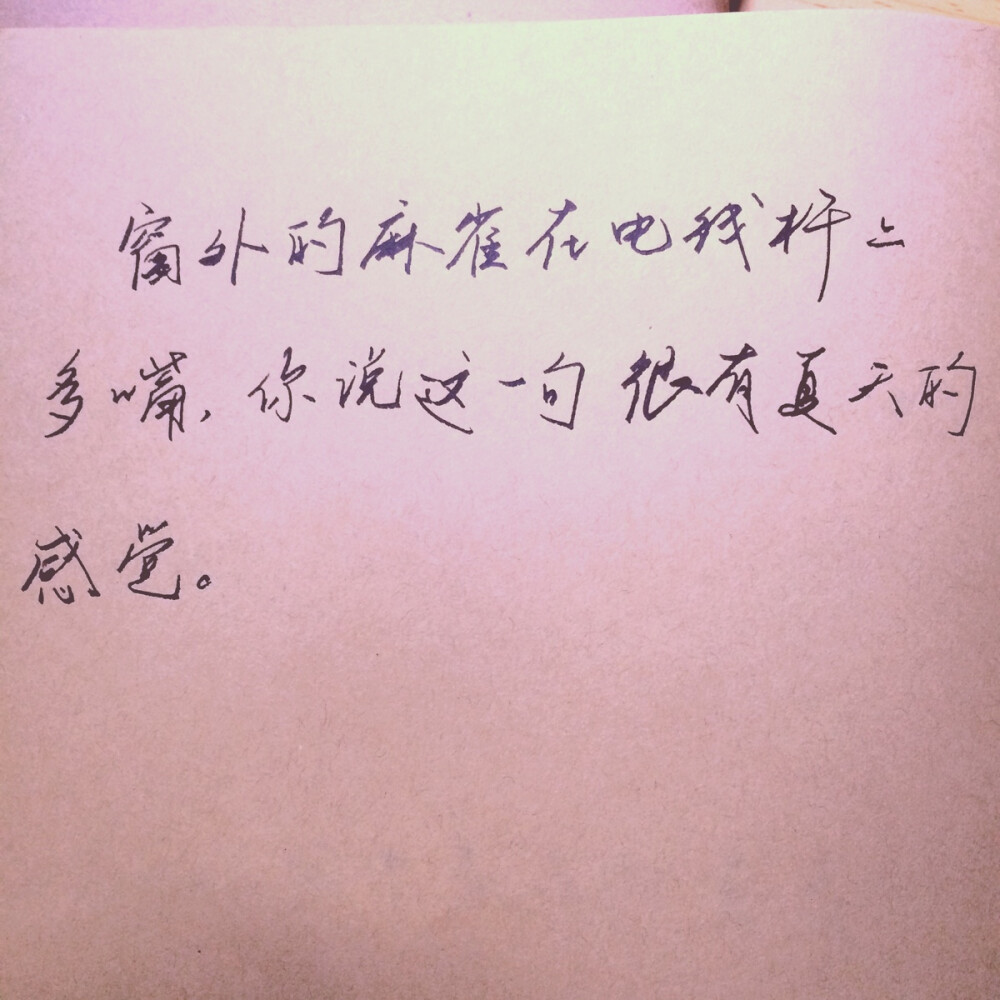 窗外的麻雀在电线杆上
多嘴，你说这一句很有夏天的
感觉。